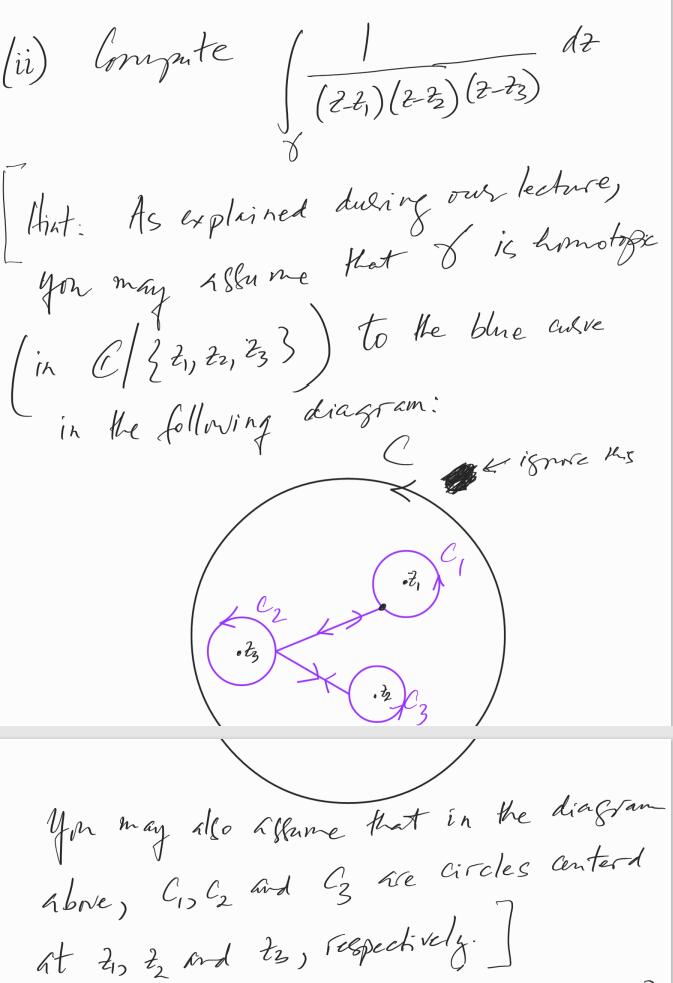 (ii) Compute ∫_γ 1/((z-z₁)(z-z₂)(z-z₃)) dz
[Hint: As explained during our lecture,
you may assume that γ is homotopic
(in ℂ/{z₁, z₂, z₃}) to the blue curve
in the following diagram:
C
← ignore this
C₁
.z₁
C₂
.z₃
.z₂
C₃
You may also assume that in the diagram
above, C₁, C₂ and C₃ are circles centerd
at z₁, z₂ and z₃, respectively.]